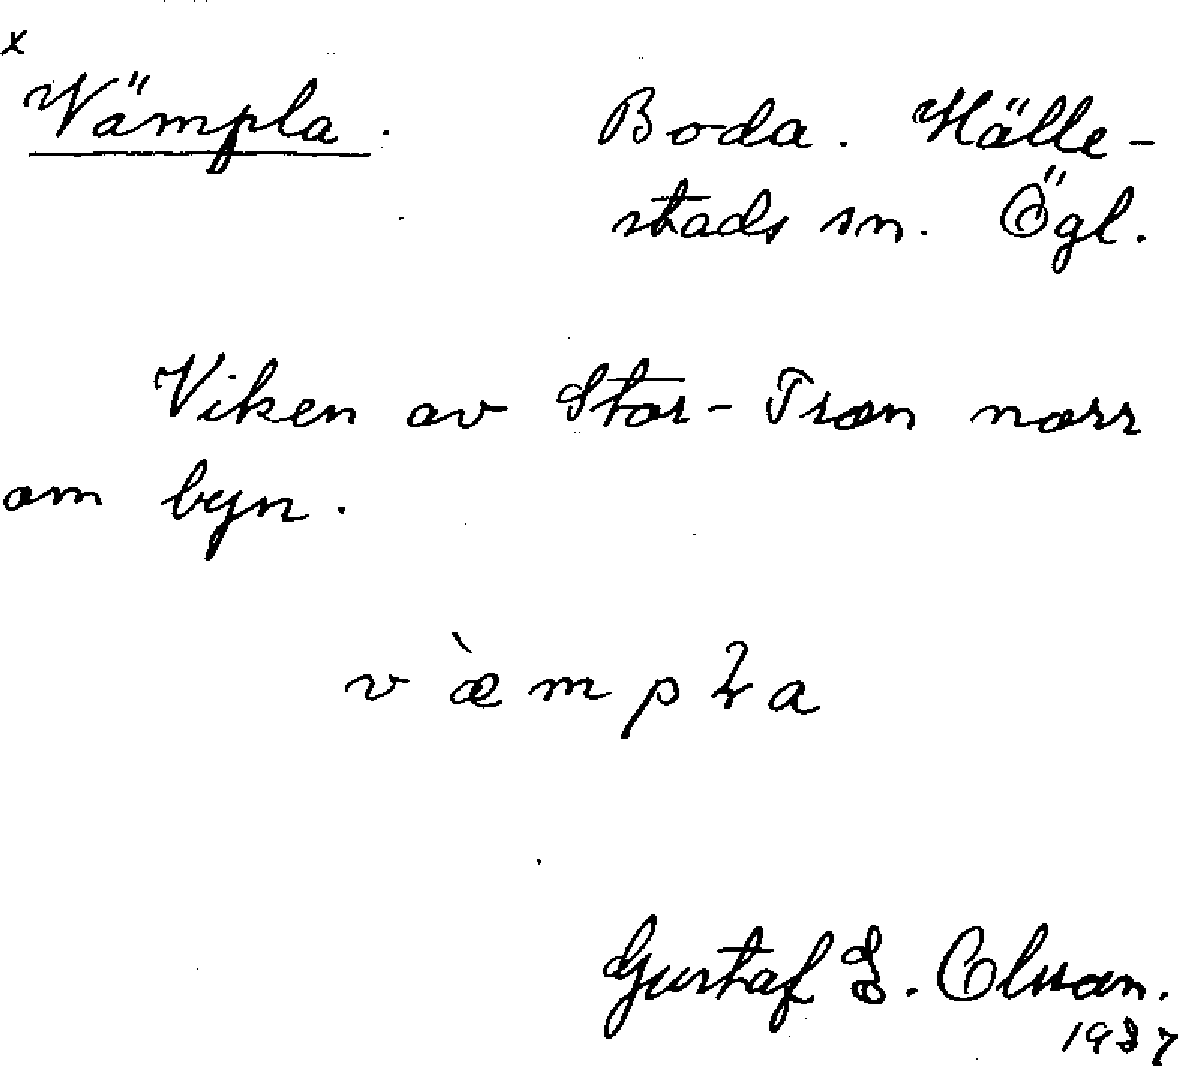 x
Vämpla. Boda. Hälle-
stads sn. Ögl.
Viken av Stor-Tron norr
om byn.
v æ̀ m p ɫ a
Gustaf Olsson.
1937